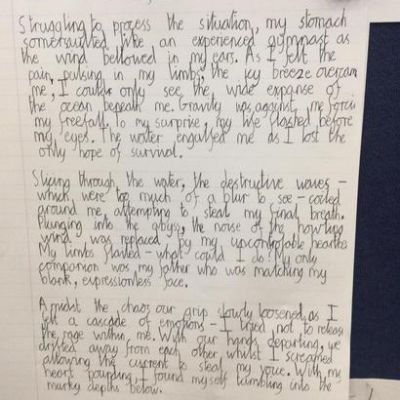 Struggling to process the situation, my stomach
somersaulted like an experienced gymnast as
the wind bellowed in my ears. As I felt the
pain pulsing in my limbs, the icy breeze overcam
me, I could only see the wide expanse of
the ocean beneath me. Gravity was against me forcin
my freefall. To my surprise, my life flashed before
my eyes. The water engulfed me as I lost the
only hope of survival.
Slicing through the water, the destructive waves –
which were too much of a blur to see – cooled
around me, attempting to steal my final breath.
Plunging into the abyss, the noise of the howling
wind was replaced by my uncontrollable
My limbs flailed – what could I do? My only
companion was my father who was matching my
blank, expressionless face.
Amidst the chaos our grip slowly loosened as I
felt a cascade of emotions – I tried not to release
the rage within me. With our hands departing, we
drifted away from each other, whilst I screamed
allowing the current to steal my voice. With my
heart pounding, I found myself tumbling into the
murky depths below.